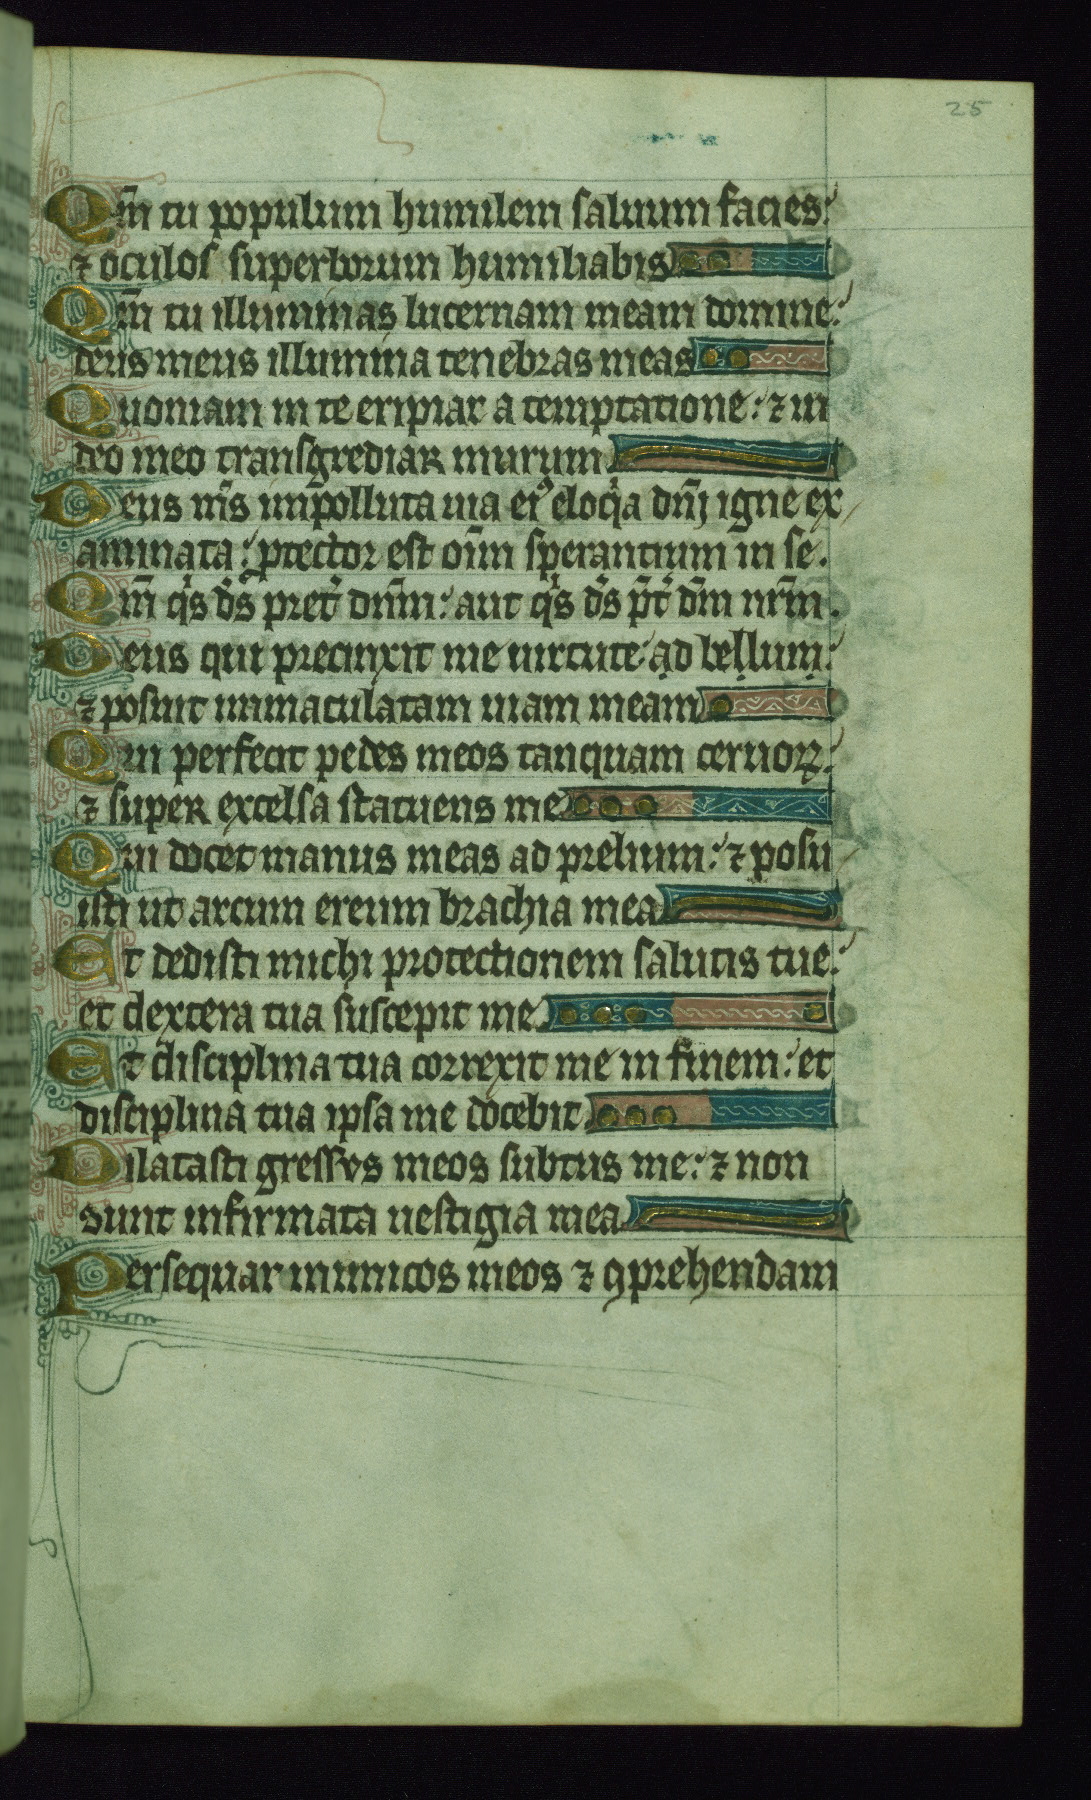 25
Qm̄ tu populum humilem saluum facies:
⁊ oculos superborum humiliabis
Qm̄ tu illuminas lucernam meam domine:
deus meus illumina tenebras meas
Quoniam in te eripiar a temptatione: ⁊ in
deo meo transgrediar murum
Deus m̄s impolluta uia eiꝰ eloq̇a dn̄j igne ex
aminata: ptector est oīm sperantium in se.
Qm̄ q̇s d̄s pret̉ dn̄m: aut q̇s d̄s p̄t̉ dm̄ nr̄m.
Deus qui precinxit me uirtute ad bellum:
⁊ posuit immaculatam uiam meam
Qui perfecit pedes meos tanquam ceruoꝝ:
⁊ super excelsa statuens me
Qui docet manus meas ad prelium: ⁊ posu
isti ut arcum ereum brachia mea
Et dedisti michi protectionem salutis tue:
et dextera tua suscepit me
Et disciplina tua correxit me in finem: et
disciplina tua ipsa me docebit
Dilatasti gressvs meos subtus me: ⁊ non
sunt infirmata uestigia mea
Persequar inimicos meos ⁊ ꝯprehendam